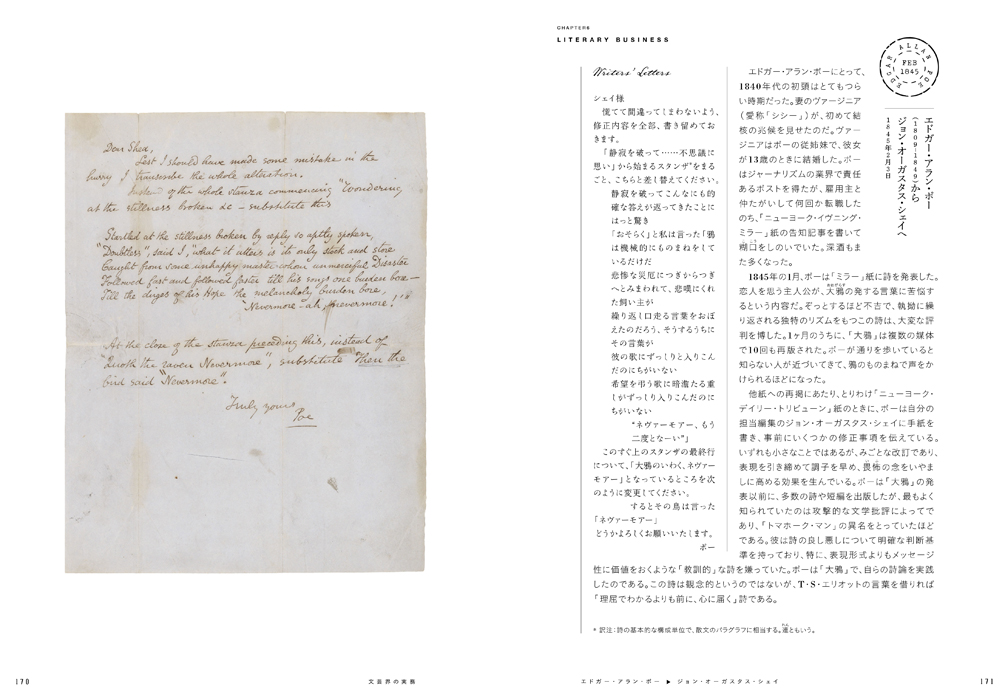 Dear Shea,
Lest I should have made some mistake in the
hurry I transcribe the whole alteration.
Instead of the whole stanza commencing "Wondering
at the stillness broken &c — substitute this
Startled at the stillness broken by reply so aptly spoken,
"Doubtless", said I, "what it utters is its only stock and store
Caught from some unhappy master whom unmerciful Disaster
Followed fast and followed faster till his songs one burden bore —
Till the dirges of his Hope the melancholy burden bore,
"Nevermore — ah, nevermore!"
At the close of the stanza preceding this, instead of
"Quoth the raven Nevermore", substitute "Then the
bird said "Nevermore".
Truly yours
Poe
170
文芸界の実務
CHAPTER6
LITERARY BUSINESS
Writers' Letters
シェイ様
慌てて間違ってしまわないよう、
修正内容を全部、書き留めてお
きます。
「静寂を破って……不思議に
想い」から始まるスタンザ*をまる
ごと、こちらと差し替えてください。
静寂を破ってこんなにも的
確な答えが返ってきたことに
はっと驚き
「おそらく」と私は言った「鴉
は機械的にものまねをして
いるだけだ
悲惨な災厄につぎからつぎ
へとみまわれて、悲嘆にくれ
た飼い主が
繰り返し口走る言葉をおぼ
えたのだろう、そうするうちに
その言葉が
彼の歌にずっしりと入りこん
だのにちがいない
希望を弔う歌に暗澹たる重
しがずっしり入りこんだのに
ちがいない
“ネヴァーモアー、もう
二度となーい”」
このすぐ上のスタンザの最終行
について、「大鴉のいわく、ネヴァー
モアー」となっているところを次
のように変更してください。
するとその鳥は言った
「ネヴァーモアー」
どうかよろしくお願いいたします。
ポー
エドガー・アラン・ポーにとって、
1840年代の初頭はとてもつら
い時期だった。妻のヴァージニア
（愛称「シシー」）が、初めて結
核の兆候を見せたのだ。ヴァー
ジニアはポーの従姉妹で、彼女
が13歳のときに結婚した。ポー
はジャーナリズムの業界で責任
あるポストを得たが、雇用主と
仲たがいして何回か転職した
のち、「ニューヨーク・イヴニング・
ミラー」紙の告知記事を書いて
糊口をしのいでいた。深酒もま
た多くなった。
1845年の1月、ポーは「ミラー」紙に詩を発表した。
恋人を思う主人公が、大鴉の発する言葉に苦悩す
るという内容だ。ぞっとするほど不吉で、執拗に繰
り返される独特のリズムをもつこの詩は、大変な評
判を博した。1ヶ月のうちに、「大鴉」は複数の媒体
で10回も再版された。ポーが通りを歩いていると
知らない人が近づいてきて、鴉のものまねで声をか
けられるほどになった。
他紙への再掲にあたり、とりわけ「ニューヨーク・
デイリー・トリビューン」紙のときに、ポーは自分の
担当編集のジョン・オーガスタス・シェイに手紙を
書き、事前にいくつかの修正事項を伝えている。
いずれも小さなことではあるが、みごとな改訂であり、
表現を引き締めて調子を早め、畏怖の念をいやま
しに高める効果を生んでいる。ポーは「大鴉」の発
表以前に、多数の詩や短編を出版したが、最もよく
知られていたのは攻撃的な文学批評によってで
あり、「トマホーク・マン」の異名をとっていたほど
である。彼は詩の良し悪しについて明確な判断基
準を持っており、特に、表現形式よりもメッセージ
性に価値をおくような「教訓的」な詩を嫌っていた。ポーは「大鴉」で、自らの詩論を実践
したのである。この詩は観念的というのではないが、T・S・エリオットの言葉を借りれば
「理屈でわかるよりも前に、心に届く」詩である。
EDGAR ALLAN POE
FEB
1845
エドガー・アラン・ポー
（1809-1849）から
ジョン・オーガスタス・シェイへ
1845年2月3日
* 訳注：詩の基本的な構成単位で、散文のパラグラフに相当する。連ともいう。
エドガー・アラン・ポー ▶ ジョン・オーガスタス・シェイ
171